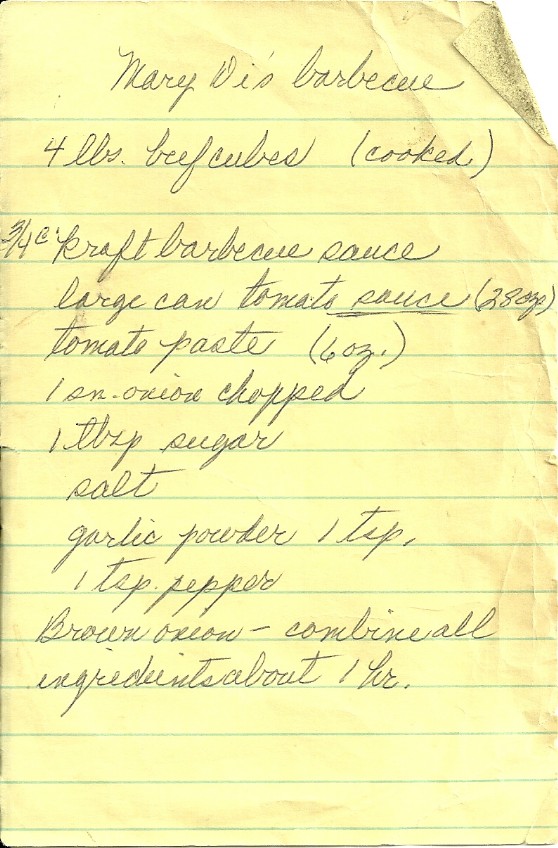 Mary Di's barbecue
4 lbs. beef cubes (cooked)
3/4 c. Kraft barbecue sauce
large can tomato sauce (28 oz)
tomato paste (6 oz.)
1 sm. onion chopped
1 tbsp sugar
salt
garlic powder 1 tsp.
1 tsp. pepper
Brown onion - combine all
ingredients about 1 hr.